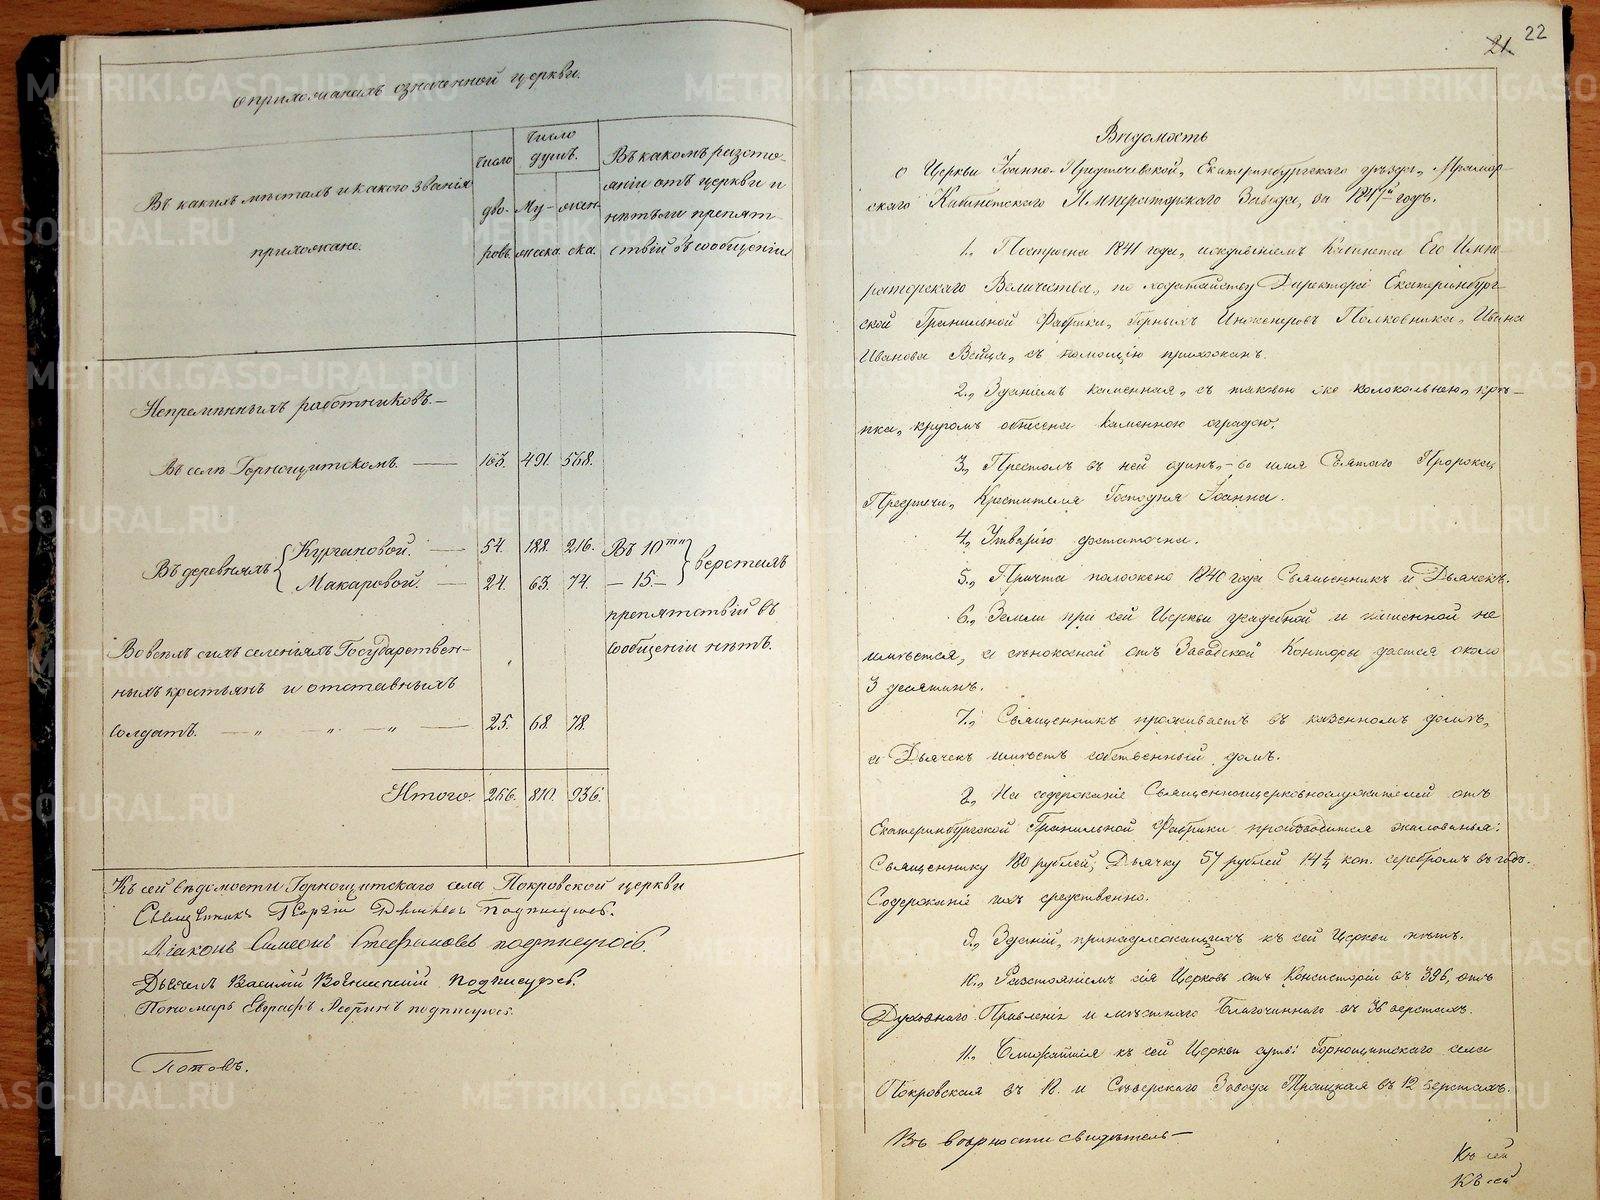 о прихожанахъ означенной церкви.
Въ какихъ мѣстахъ и какого званія
прихожане.
Число
дво-
ровъ.
Число
душъ.
Му-
жеска.
жен-
ска.
Въ какомъ разсто-
яніи отъ церкви и
нѣтъ ли препят
ствій въ сообщеніи
Непремѣнныхъ работниковъ.—
Въ селѣ Горнощитскомъ. — 163. 491. 568.
Въ деревняхъ
Кургановой. — 54. 188. 216. Въ 10ти
Макаровой. — 24. 63. 74. — 15.— верстахъ
препятствій въ
сообщеніи нѣтъ.
Во всехъ сихъ селеніяхъ Государствен-
ныхъ крестьянъ и отставныхъ
солдатъ. — „ — „ — „ — 25. 68. 78.
Итого. 266. 810. 936.
Къ сей вѣдомости Горнощитскаго села Покровской церкви
Священникъ Георгій подписуюсь.
Діаконъ Симеонъ Стефановъ подписуюсь
Дьячекъ Василій подписуюсь.
Пономарь Евграфъ подписуюсь.
22
21.
Вѣдомость
о Церкви Іоанно-Предтечевской, Екатеринбургскаго уѣзда, Мрамор-
скаго Кабинетскаго Императорскаго Завода, за 1847й годъ.
1., Построена 1841 года, иждивеніемъ Кабинета Его Импе
раторскаго Величества, по ходатайству Директора Екатеринбург-
ской Гранильной Фабрики, Горныхъ Инженеровъ Полковника, Ивана
Иванова Вейца, съ помощію прихожанъ.
2., Зданіемъ каменная, съ таковою же колокольнею, крѣ-
пка, кругомъ обнесена каменною оградою.
3., Престолъ въ ней одинъ,- во имя Святаго Пророка,
Предтечи, Крестителя Господня Іоанна.
4., Утварію достаточна.
5., Причта положено 1840 года Священникъ и Дьячекъ.
6., Земли при сей Церкви усадебной и пашенной не
имѣется, а сѣнокосной отъ Заводской Конторы дается около
3 десятинъ.
7., Священникъ проживаетъ въ казенномъ домѣ,
а Дьячекъ имѣетъ собственный домъ.
8., На содержаніе Священноцерковнослужителей отъ
Екатеринбургской Гранильной Фабрики производится жалованья:
Священнику 180 рублей, Дьячку 57 рублей 14¼ коп. серебромъ въ годъ.
Содержаніе ихъ средственно.
9., Зданій, принадлежащихъ къ сей Церкви нѣтъ.
10., Разстояніемъ сія Церковь отъ Консисторіи въ 396, отъ
Духовнаго Правленія и мѣстнаго Благочиннаго въ 36 верстахъ.
11., Ближайшія къ сей Церкви суть: Горнощитскаго села
Покровская въ 12. и Сѣверскаго Завода Троицкая въ 12 верстахъ.
Въ вѣрности свидѣтель—
Къ сей
Къ сей
METRIKI.GASO-URAL.RU